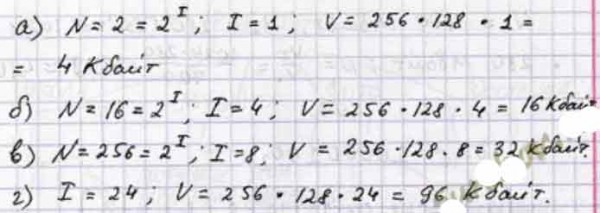 а) N = 2 = 2^I; I = 1; V = 256 · 128 · 1 =
= 4 Кбайт
б) N = 16 = 2^I; I = 4; V = 256 · 128 · 4 = 16 Кбайт
в) N = 256 = 2^I; I = 8; V = 256 · 128 · 8 = 32 Кбайт.
г) I = 24; V = 256 · 128 · 24 = 96 Кбайт.